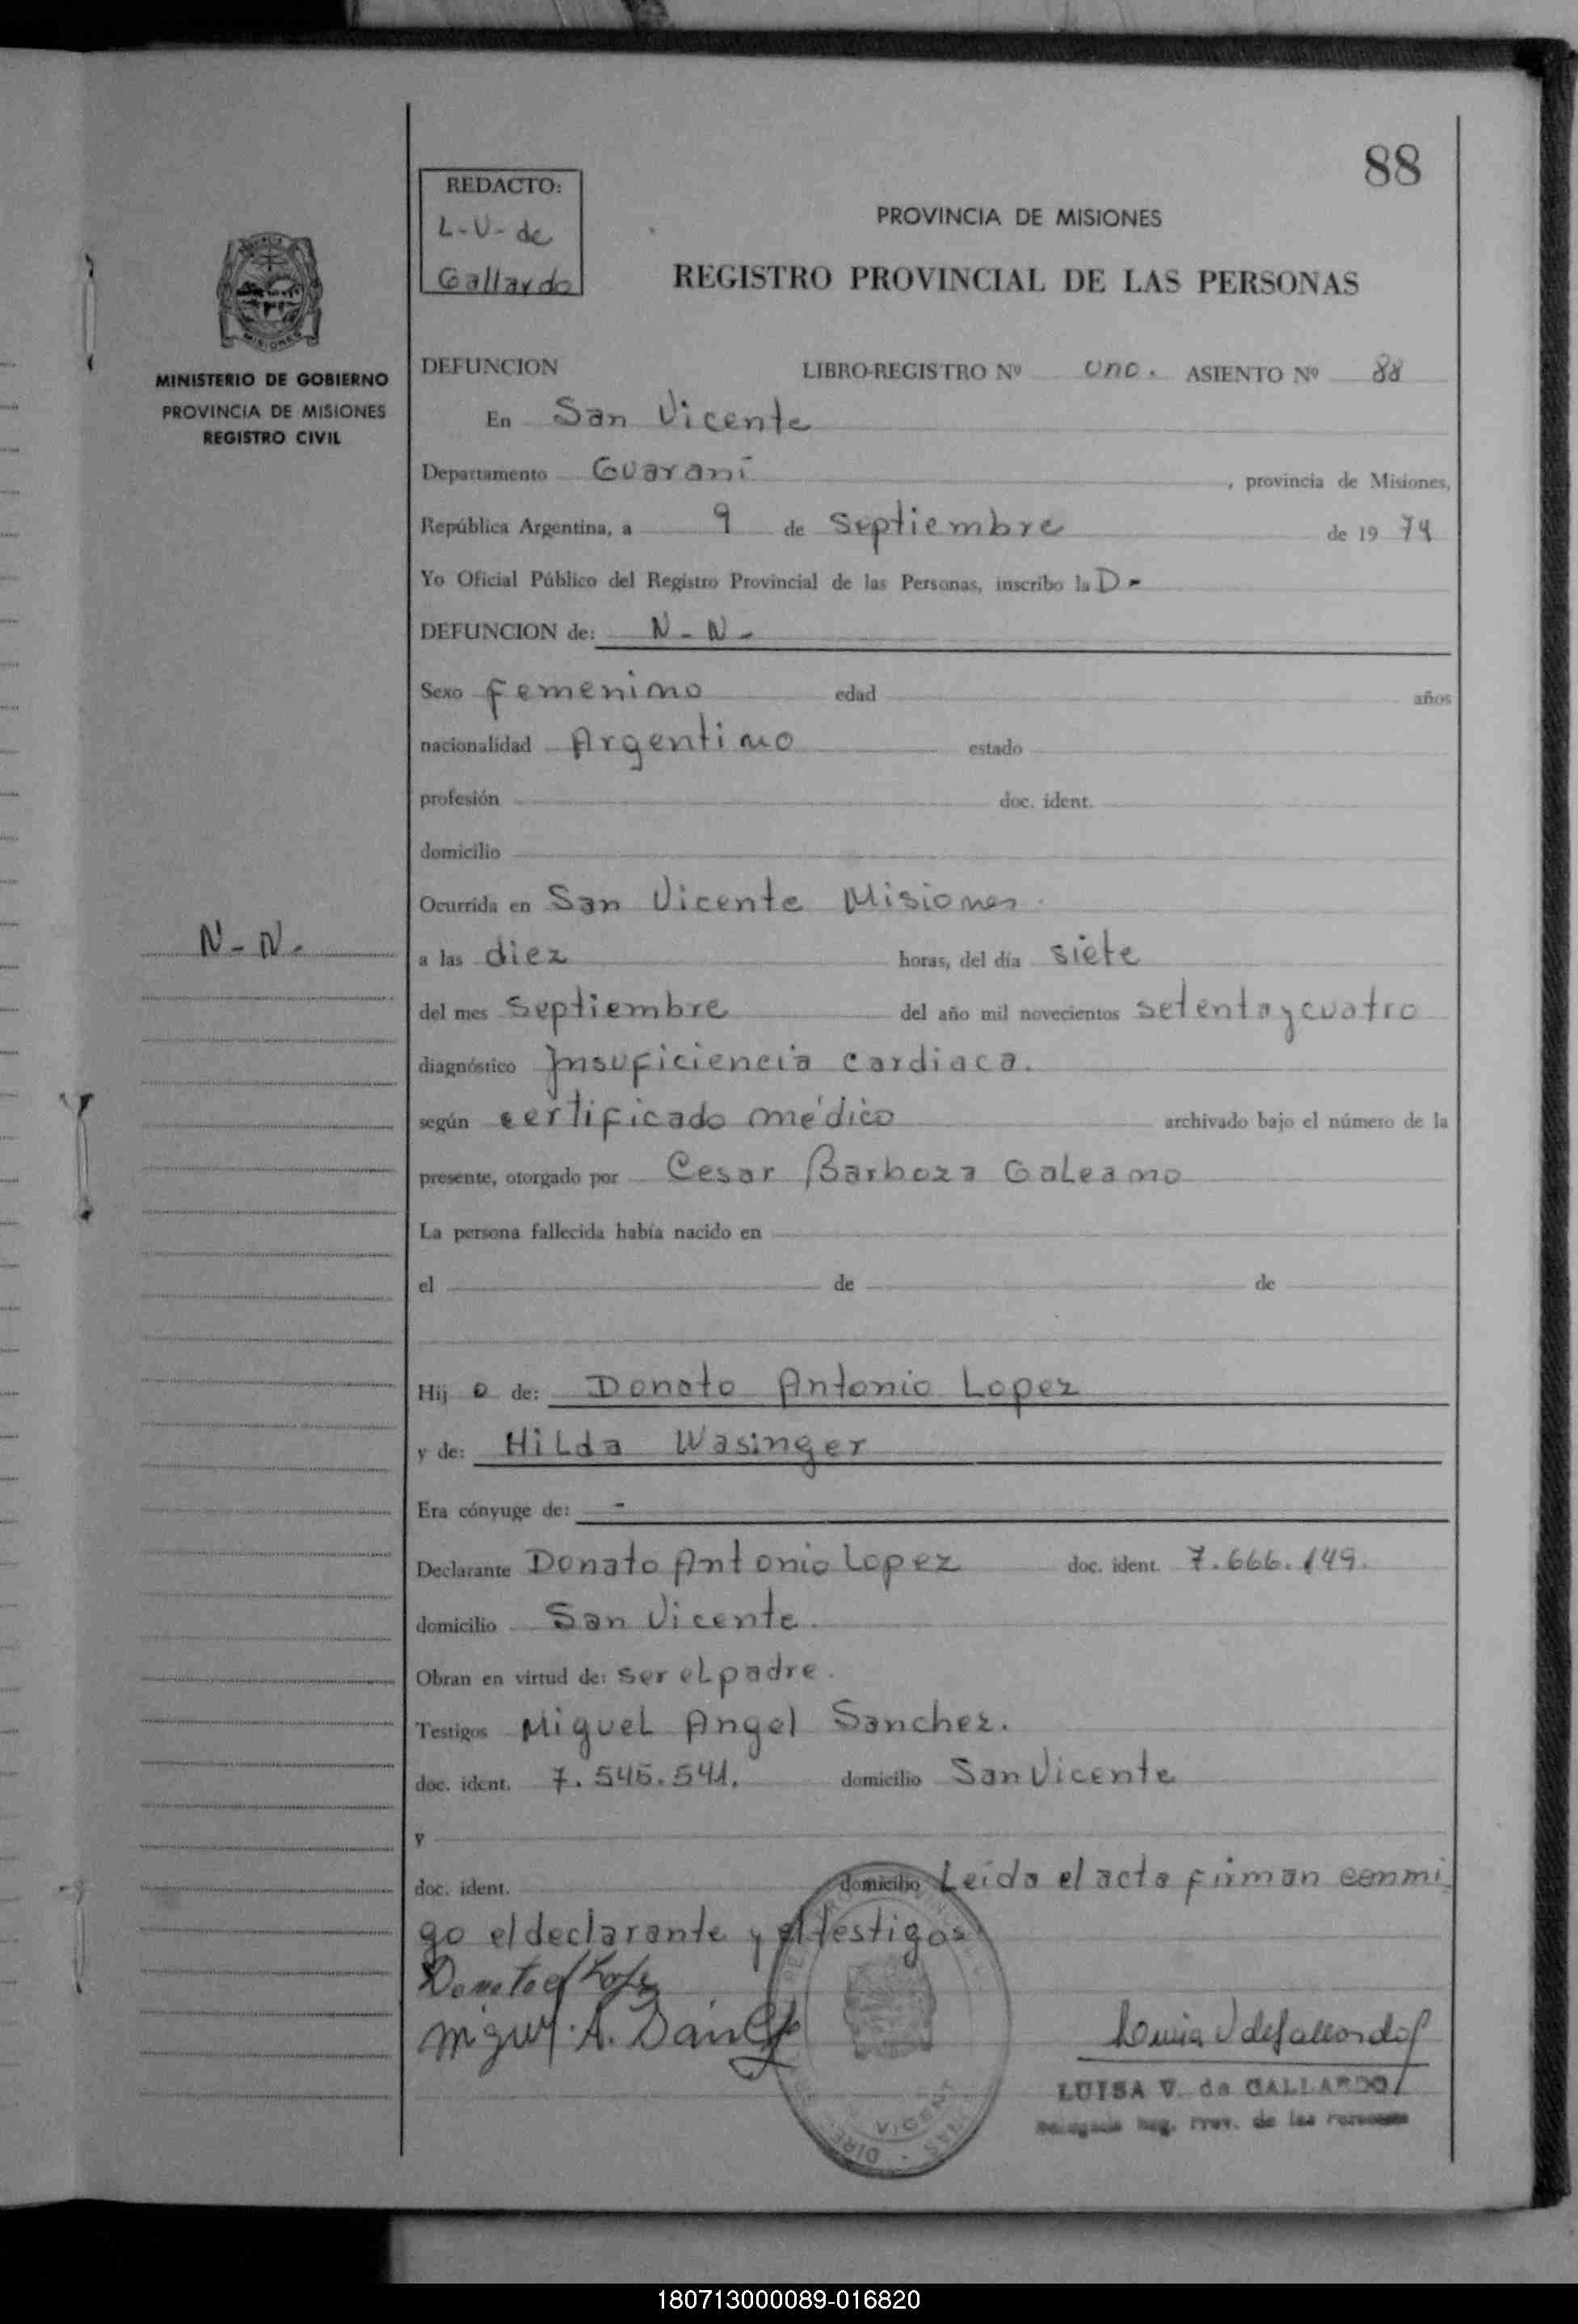 88
REDACTO:
L-V- de
Gallardo
PROVINCIA DE MISIONES
REGISTRO PROVINCIAL DE LAS PERSONAS
MISIONES
MINISTERIO DE GOBIERNO
PROVINCIA DE MISIONES
REGISTRO CIVIL
DEFUNCION LIBRO-REGISTRO Nº uno. ASIENTO Nº 88
En San Vicente
Departamento Guaraní , provincia de Misiones,
República Argentina, a 9 de Septiembre de 19 74
Yo Oficial Público del Registro Provincial de las Personas, inscribo la D-
DEFUNCION de: N-N-
Sexo femenino edad años
nacionalidad Argentino estado
profesión doc. ident.
domicilio
Ocurrida en San Vicente Misiones.
N-N-
a las diez horas, del día siete
del mes Septiembre del año mil novecientos setenta y cuatro
diagnóstico Insuficiencia cardiaca.
según certificado médico archivado bajo el número de la
presente, otorgado por Cesar Barboza Galeano
La persona fallecida había nacido en
el de de
Hij o de: Donato Antonio Lopez
y de: Hilda Wasinger
Era cónyuge de: -
Declarante Donato Antonio Lopez doc. ident. 7.666.149.
domicilio San Vicente.
Obran en virtud de: ser el padre.
Testigos Miguel Angel Sanchez.
doc. ident. 7.545.541. domicilio San Vicente
y
doc. ident. domicilio Leída el acta firman conmi
go el declarante y el testigos
Donato A Lopez
Miguel A. Sanch
LUISA V. de GALLARDO
Reg. Prov. de las Personas
VICENT
DIRE
180713000089-016820